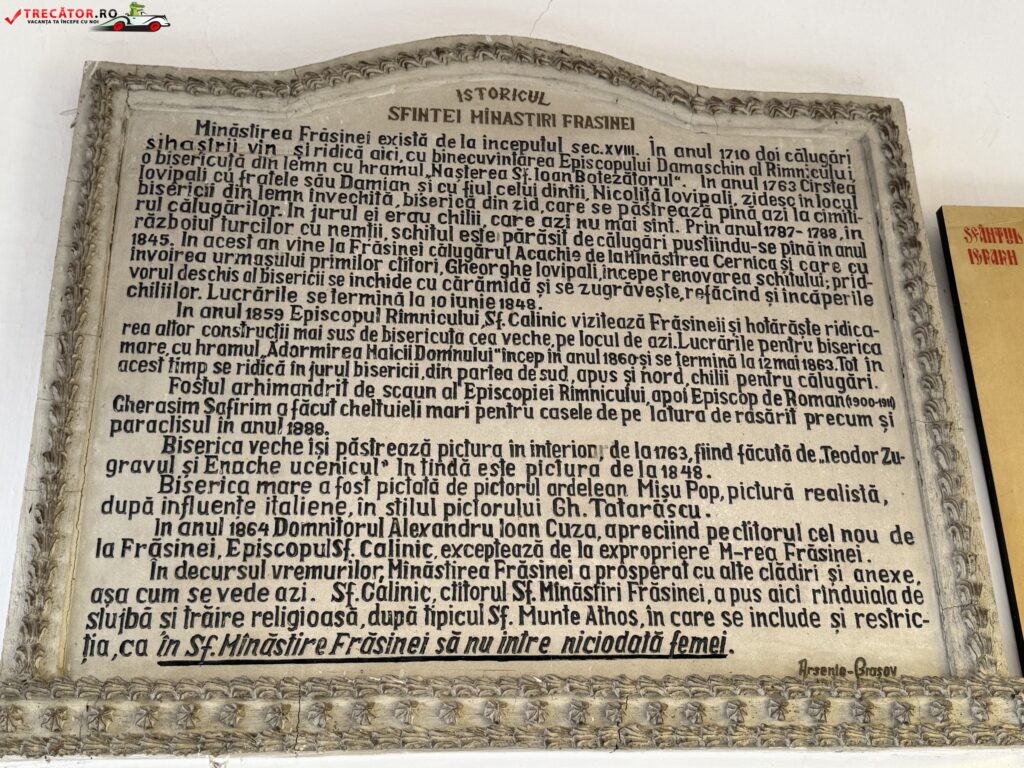 TRECĂTOR.RO
VACANȚA TA ÎNCEPE CU NOI
ISTORICUL
SFINTEI MÎNASTIRI FRASINEI
Minăstirea Frăsinei există de la inceputul sec.XVIII. În anul 1710 doi călugări
sihaștrii vin și ridică aici, cu binecuvintărea Episcopului Damaschin al Rimnicului,
o bisericută din lemn cu hramul „Nașterea Sf. Ioan Botezătorul". In anul 1763 Cîrstea
Iovipali cu fratele său Damian și cu fiul celui dintii, Nicoliță Iovipali, zidesc in locul
bisericii din lemn invechită, biserică din zid, care se păstrează pină azi la cimiti-
rul călugărilor. In jurul ei erau chilii, care azi nu mai sint. Prin anul 1787-1788, in
războiul turcilor cu nemții, schitul este părăsit de călugări pustiindu-se pină in anul
1845. In acest an vine la Frăsinei călugărul Acachie de la Minăstirea Cernica și care cu
invoirea urmașului primilor ctitori, Gheorghe Iovipali, incepe renovarea schitului; prid-
vorul deschis al bisericii se inchide cu cărămidă și se zugrăvește, refăcind și incăperile
chiliilor. Lucrările se termină la 10 iunie 1848.
In anul 1859 Episcopul Rîmnicului, Sf. Calinic vizitează Frăsineii și hotărăște ridica-
rea altor construcții mai sus de bisericuta cea veche, pe locul de azi. Lucrările pentru biserica
mare, cu hramul „Adormirea Maicii Domnului" incep in anul 1860 și se termină la 12 mai 1863. Tot in
acest timp se ridică in jurul bisericii, din partea de sud, apus și nord, chilii pentru călugări.
Fostul arhimandrit de scaun al Episcopiei Rimnicului, apoi Episcop de Roman (1900-1911)
Gherasim Safirim a făcut cheltuieli mari pentru casele de pe latura de răsărit precum și
paraclisul in anul 1888.
Biserica veche iși păstrează pictura in interior, de la 1763, fiind făcută de „Teodor Zu-
gravul și Enache ucenicul" In tindă este pictura de la 1848.
Biserica mare a fost pictată de pictorul ardelean Mișu Pop, pictură realistă,
după influente italiene, in stilul pictorului Gh. Tatarăscu.
In anul 1864 Domnitorul Alexandru Ioan Cuza, apreciind pe ctitorul cel nou de
la Frăsinei, Episcopul Sf. Calinic, exceptează de la expropriere M-rea Frăsinei.
În decursul vremurilor, Minăstirea Frăsinei a prosperat cu alte clădiri și anexe,
așa cum se vede azi. Sf. Calinic, ctitorul Sf. Minăstiri Frăsinei, a pus aici rinduiala de
slujbă și trăire religioasă, după tipicul Sf. Munte Athos, in care se include și restric-
ția, ca in Sf. Mînăstire Frăsinei să nu intre niciodată femei.
Arsenie-Brașov
SFÂNTUL